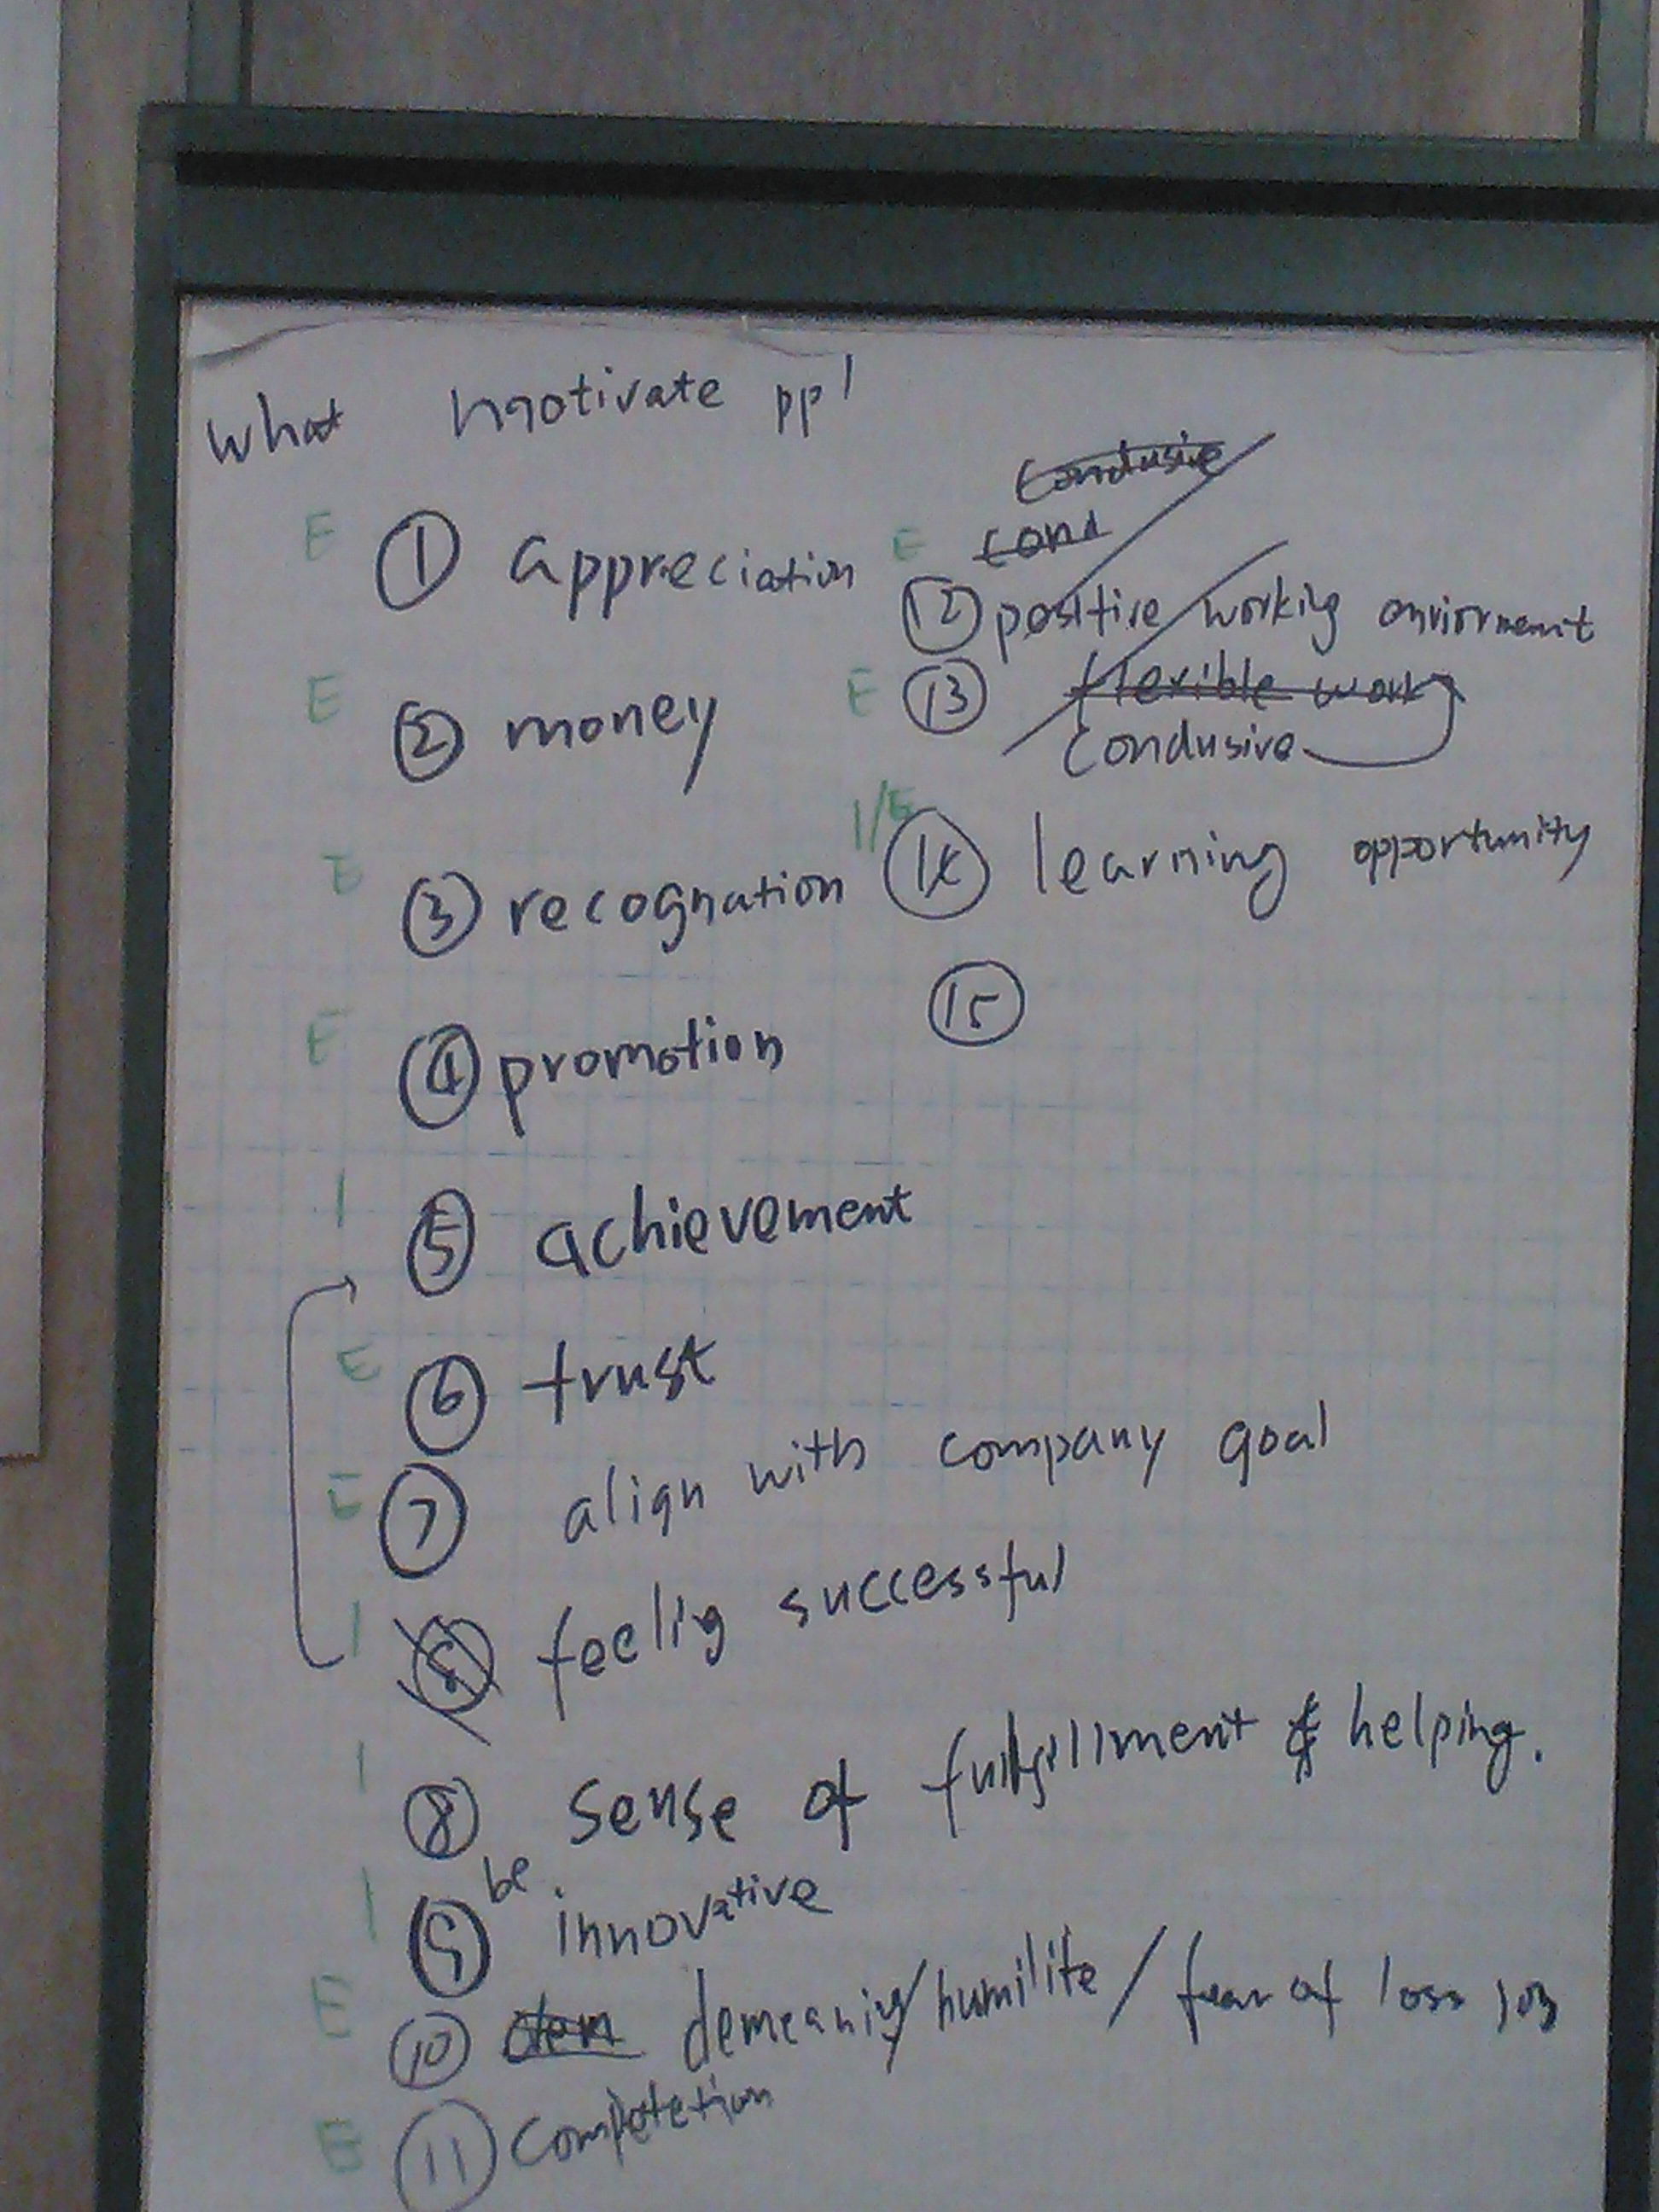 What motivate ppl
E ① appreciation
E ② money
E ③ recognation
E ④ promotion
I ⑤ achievement
E ⑥ trust
E ⑦ align with company goal
I feelig successful
I ⑧ sense of fulfillment & helping.
I ⑨ be innovative
E ⑩ dem demeaning/humilite/fear of loss job
E ⑪ Competetion
Condusive
E cond
⑫ positive working enviorment
E ⑬ flexible work
Condusive
I/E ⑭ learning opportunity
⑮